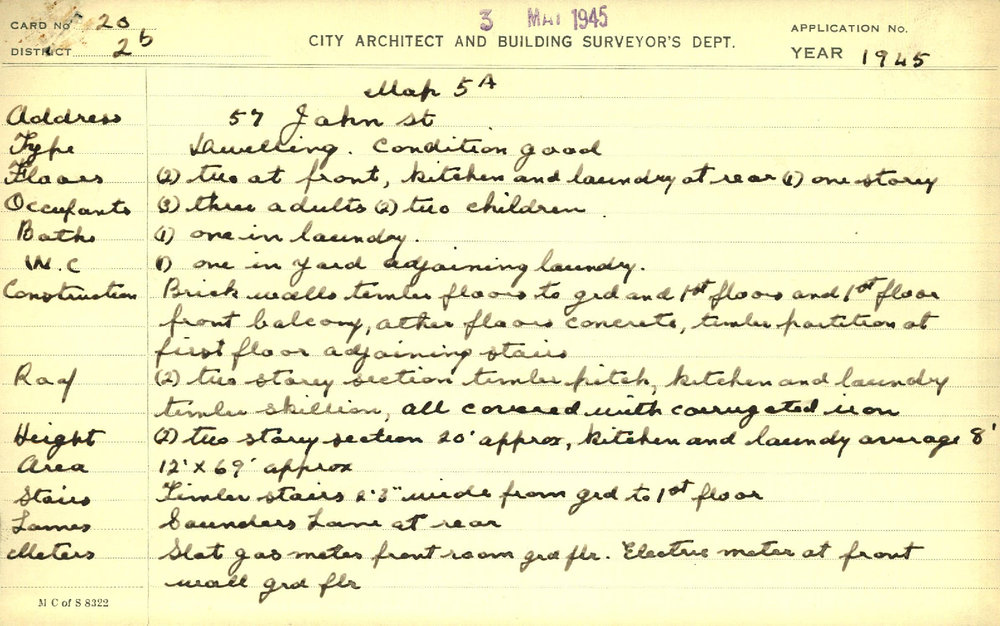 CARD No 20
3 MAY 1945
APPLICATION No.
DISTRICT 2b
CITY ARCHITECT AND BUILDING SURVEYOR'S DEPT.
YEAR 1945
Map 5A
Address 57 John st
Type Dwelling. Condition good
Floors (2) two at front, kitchen and laundry at rear (1) one storey
Occupants (3) three adults (2) two children
Baths (1) one in laundry.
W.C (1) one in yard adjoining laundry.
Construction Brick walls timber floors to grd and 1st floors and 1st floor
front balcony, other floors concrete, timber partition at
first floor adjoining stairs
Roof (2) two storey section timber pitch, kitchen and laundry
timber skillion, all covered with corrugated iron
Height (2) two storey section 20' approx, kitchen and laundy average 8'
Area 12' x 69' approx
Stairs Timber stairs 2'3" wide from grd to 1st floor
Lanes Saunders Lane at rear
Meters Slot gas meter front room grd flr. Electric meter at front
wall grd flr
M C of S 8322